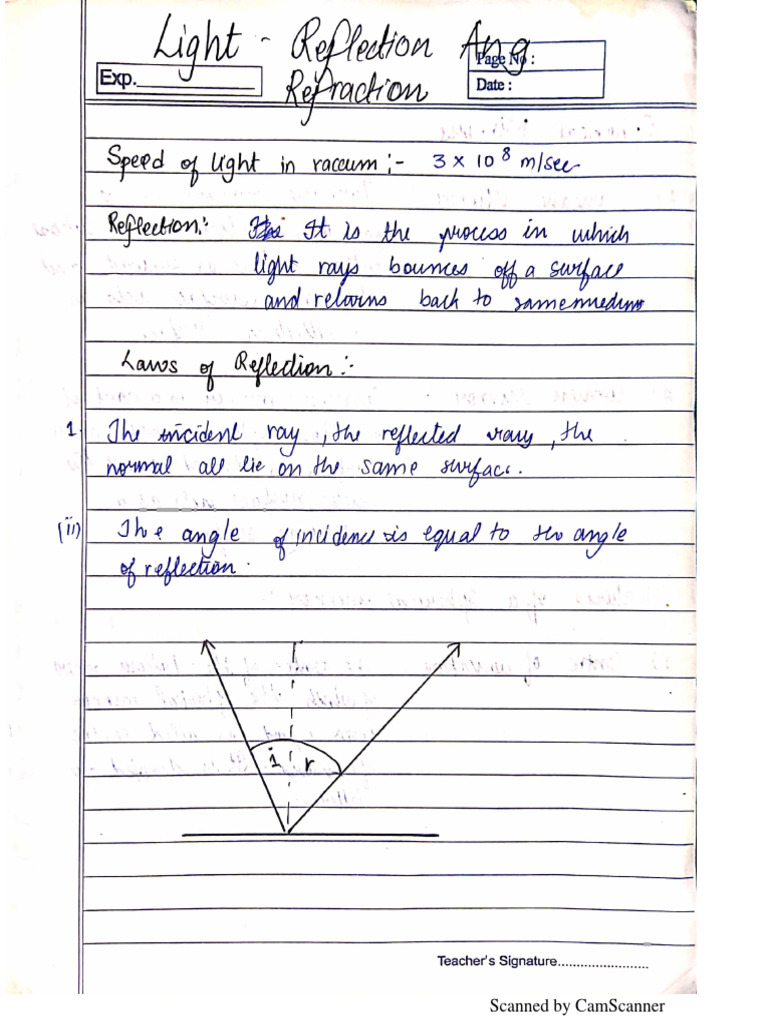 Light - Reflection Ang
Refraction
Exp.
Page No :
Date :
Speed of light in vaccum :- 3 x 10⁸ m/sec
Reflection: It is the process in which
light rays bounces off a surface
and returns back to same medium
Laws of Reflection :-
1. The incident ray , the reflected ray , the
normal all lie on the same surface.
(ii) The angle of incidence is equal to the angle
of reflection.
i r
Teacher's Signature........................
Scanned by CamScanner